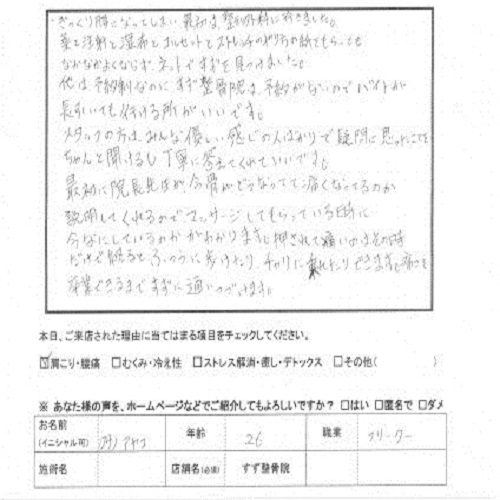 ぎっくり腰になってしまい最初は整形外科に行きました。
薬と注射と湿布とコルセットとストレッチのやり方の紙をもらっても
なかなかよくならず、ネットですずを見つけました。
他は予約制なのにすず整骨院は予約がないのでバイトが
長引いても行ける所がいいです。
スタッフの方はみんな優しい感じの人ばかりで疑問に思ったことを
ちゃんと聞けるし丁寧に答えてくれていいです。
最初に院長先生が、今骨がどうなってて痛くなってるのか
説明してくれるのでマッサージしてもらっている時に
今なにしているのかがわかりますし押されて痛いのはその時
だけで帰るとふつうに歩けたり、チャリに乗れたりできますし痛さを
卒業できるまですずに通いつづけます。
本日、ご来店された理由に当てはまる項目をチェックしてください。
☑肩こり・腰痛 □むくみ・冷え性 □ストレス解消・癒し・デトックス □その他( )
※ あなた様の声を、ホームページなどでご紹介してもよろしいですか? □はい □匿名で □ダメ
お名前 (イニシャル可) 年齢 26 職業 フリーター
施術名 店舗名(必須) すず整骨院